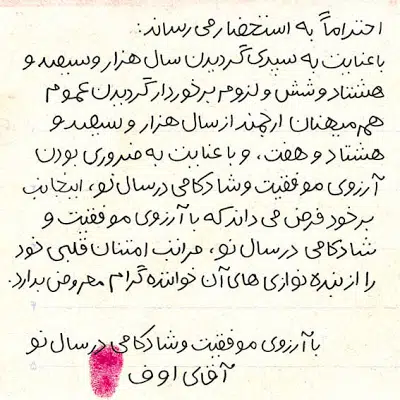 احتراماً به استحضار می رساند:
با عنایت به سپری گردیدن سال هزار و سیصد و
هشتاد و شش و لزوم برخوردار گردیدن عموم
هم میهنان ارجمند از سال هزار و سیصد و
هشتاد و هفت، و با عنایت به ضروری بودن
آرزوی موفقیت و شادکامی در سال نو، اینجانب
بر خود فرض می داند که با آرزوی موفقیت و
شادکامی در سال نو، مراتب امتنان قلبی خود
را از بنده نوازی های آن خواننده گرام معروض بدارد.
با آرزوی موفقیت و شادکامی در سال نو
آقای اوف